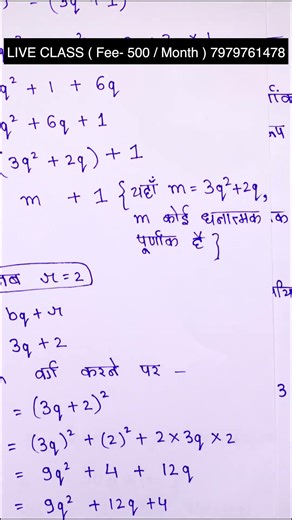 (3q + 1)
LIVE CLASS ( Fee- 500 / Month ) 7979761478
q² + 1 + 6q
q² + 6q + 1
(3q² + 2q) + 1
m + 1 {यहाँ m = 3q²+2q,
m कोई धनात्मक
पूर्णांक है}
जब r = 2
bq + r
3q + 2
वर्ग करने पर –
= (3q + 2)²
= (3q)² + (2)² + 2 × 3q × 2
= 9q² + 4 + 12q
= 9q² + 12q + 4
3